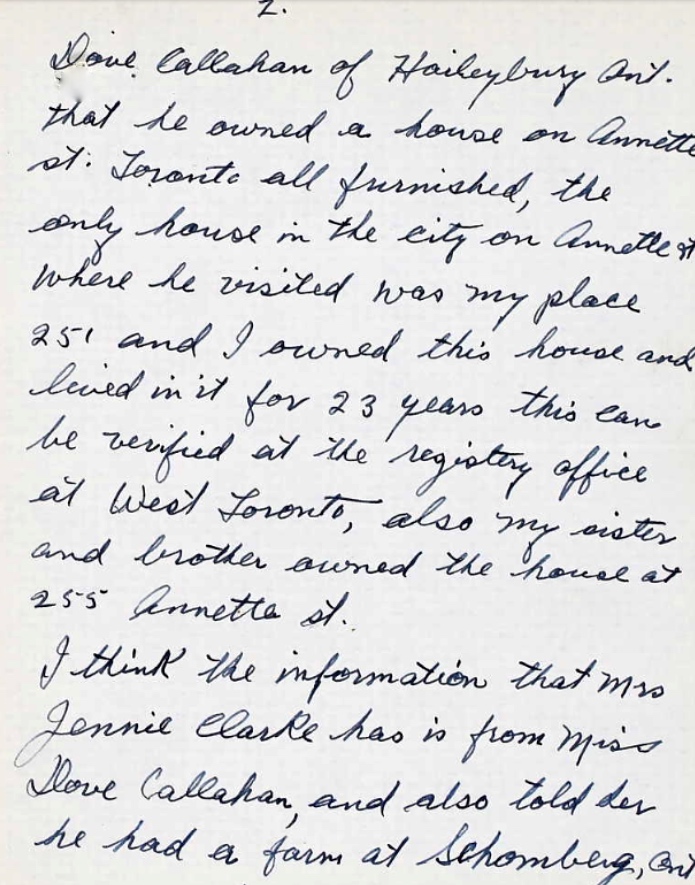 2.
Dove Callahan of Haileybury Ont.
that he owned a house on Annette
st. Toronto all furnished, the
only house in the city on Annette st
where he visited was my place
251 and I owned this house and
lived in it for 23 years this can
be verified at the registery office
at West Toronto, also my sister
and brother owned the house at
255 Annette st.
I think the information that Mrs
Jennie Clarke has is from Miss
Dove Callahan, and also told her
he had a farm at Schomberg, Ont